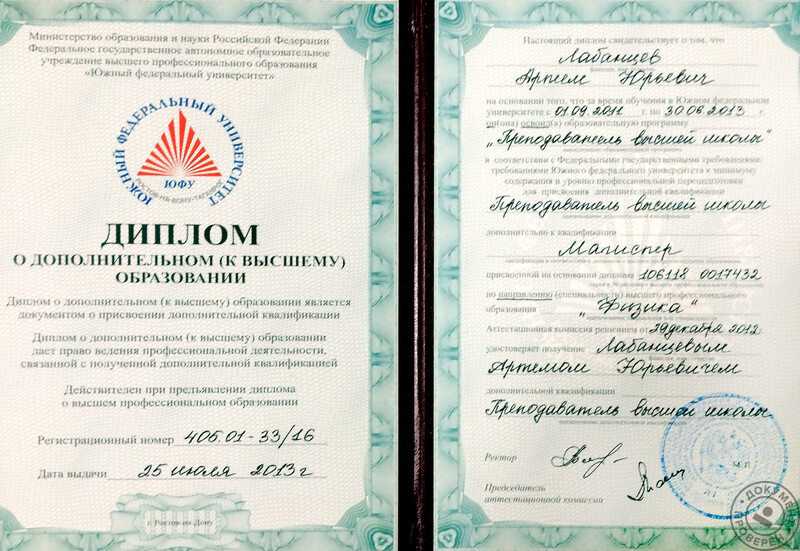 Министерство образования и науки Российской Федерации
Федеральное государственное автономное образовательное
учреждение высшего профессионального образования
«Южный федеральный университет»
ЮЖНЫЙ ФЕДЕРАЛЬНЫЙ УНИВЕРСИТЕТ
ЮФУ
РОСТОВ-НА-ДОНУ-ТАГАНРОГ
ДИПЛОМ
О ДОПОЛНИТЕЛЬНОМ (К ВЫСШЕМУ)
ОБРАЗОВАНИИ
Диплом о дополнительном (к высшему) образовании является
документом о присвоении дополнительной квалификации
Диплом о дополнительном (к высшему) образовании
дает право ведения профессиональной деятельности,
связанной с полученной дополнительной квалификацией
Действителен при предъявлении диплома
о высшем профессиональном образовании
Регистрационный номер 406.01-33/16
Дата выдачи 25 июля 2013 г
г. Ростов-на-Дону
Настоящий диплом свидетельствует о том, что
Лабанцев
Артем Юрьевич
на основании того, что за время обучения в Южном федеральном
университете с 01.09.2011 г. по 30.06.2013 г.
он(она) освоил(а) образовательную программу
„Преподаватель высшей школы“
в соответствии с Федеральными государственными требованиями/
требованиями Южного федерального университета к минимуму
содержания и уровню профессиональной переподготовки
для присвоения дополнительной квалификации
Преподаватель высшей школы
дополнительно к квалификации
Магистр
присвоенной на основании диплома 106118 0017432
по направлению (специальности) высшего профессионального
образования „Физика“
Аттестационная комиссия решением от 29 декабря 2012
удостоверяет получение Лабанцевым
Артемом Юрьевичем
дополнительной квалификации
Преподаватель высшей школы
Ректор
М.П.
Председатель
аттестационной комиссии
ДОКУМЕНТ
ПРОВЕРЕН